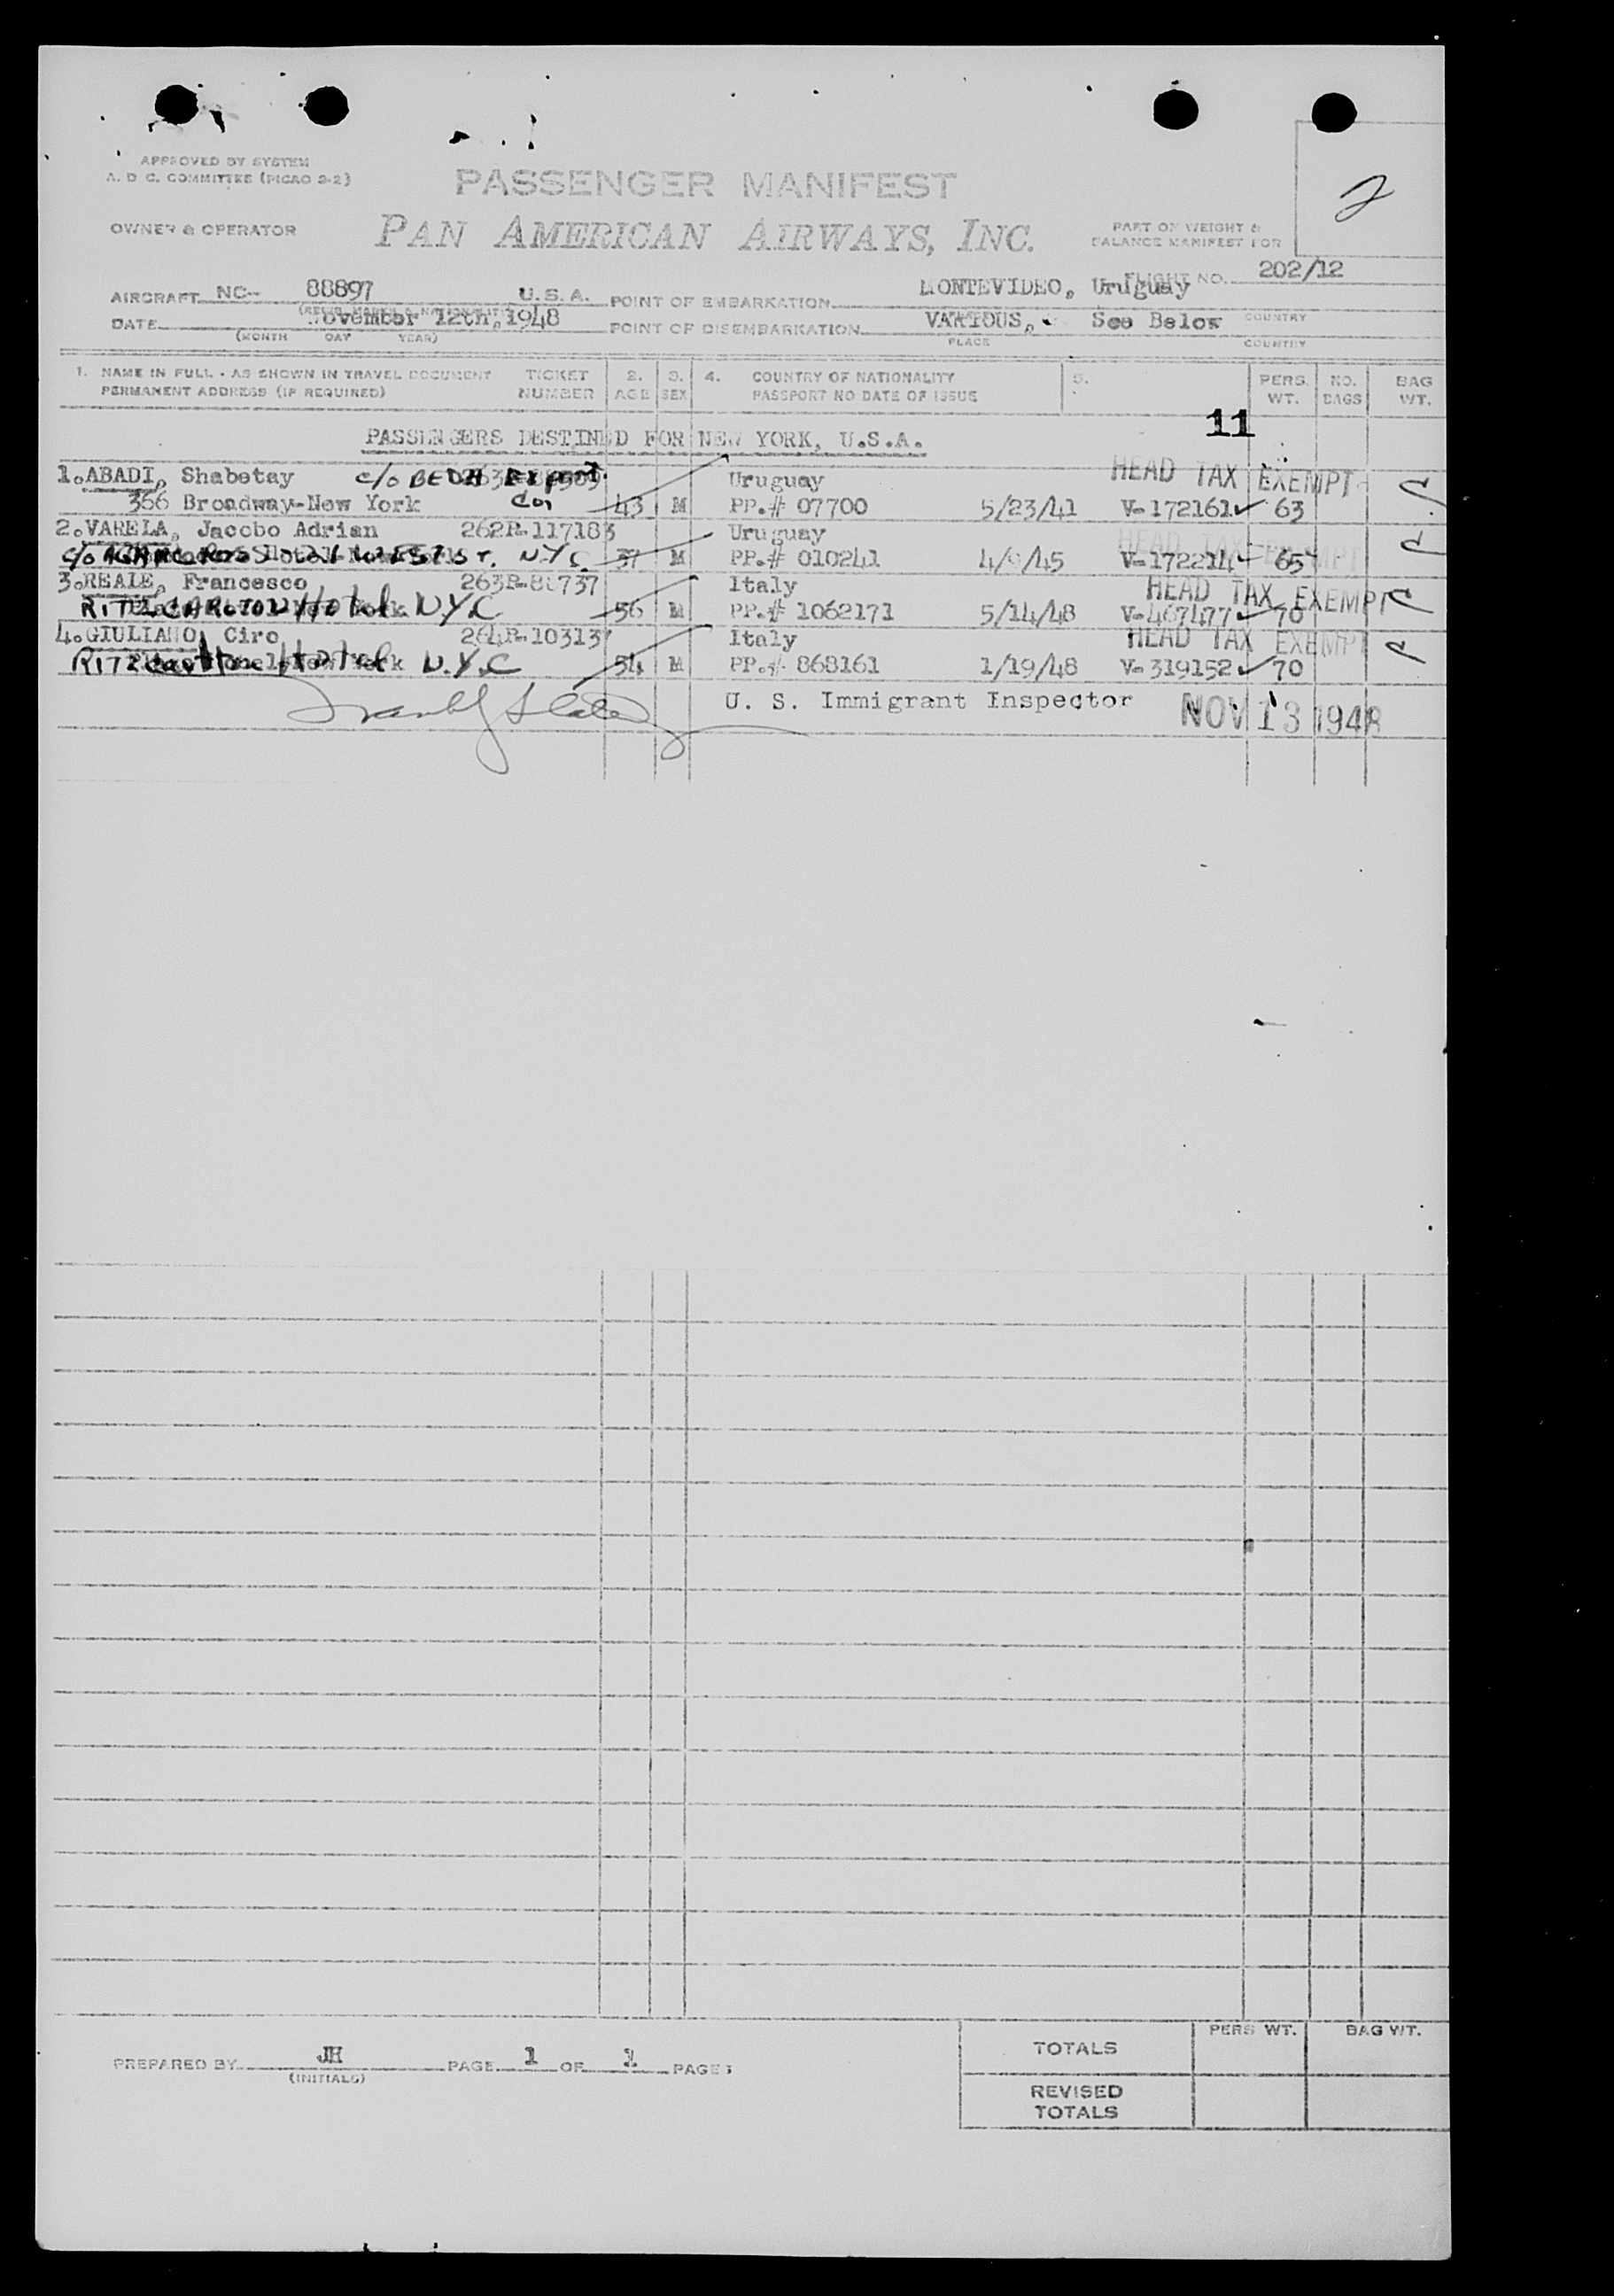 APPROVED BY SYSTEM
A. D C. COMMITTEE (PICAO 2-2)
PASSENGER MANIFEST
2
OWNER & OPERATOR
PAN AMERICAN AIRWAYS, INC.
PART OF WEIGHT &
BALANCE MANIFEST FOR
FLIGHT NO. 202/12
AIRCRAFT NC- 88897 U.S.A. POINT OF EMBARKATION MONTEVIDEO, Uruguay
DATE November 12th, 1948 POINT OF DISEMBARKATION VARIOUS, See Below COUNTRY
(MONTH DAY YEAR) PLACE COUNTRY
1. NAME IN FULL - AS SHOWN IN TRAVEL DOCUMENT TICKET 2. 3. 4. COUNTRY OF NATIONALITY 5. PERS. NO. BAG
PERMANENT ADDRESS (IF REQUIRED) NUMBER AGE SEX PASSPORT NO DATE OF ISSUE WT. BAGS WT.
11
PASSENGERS DESTINED FOR NEW YORK, U.S.A.
1. ABADI, Shabetay c/o Export Uruguay HEAD TAX EXEMPT
366 Broadway-New York Co, 43 M PP.# 07700 5/23/41 V-172161 63
2. VARELA, Jacobo Adrian 262R-117183 Uruguay HEAD TAX EXEMPT
c/o ST. N.Y.C. 37 M PP.# 010241 V-172214 65
3. REALE, Francesco 263R-80737 Italy HEAD TAX EXEMPT
RITZ CARLTON Hotel N.Y.C 56 M PP.# 1062171 5/14/48 V-467477 70
4. GIULIANO, Ciro 264R-103137 Italy HEAD TAX EXEMPT
RITZ Carlton Hotel N.Y.C 54 M PP.# 868161 1/19/48 V-319152 70
U. S. Immigrant Inspector NOV 13 1948
PERS WT. BAG WT.
TOTALS
PREPARED BY JH PAGE 1 OF 1 PAGES
(INITIALS)
REVISED
TOTALS